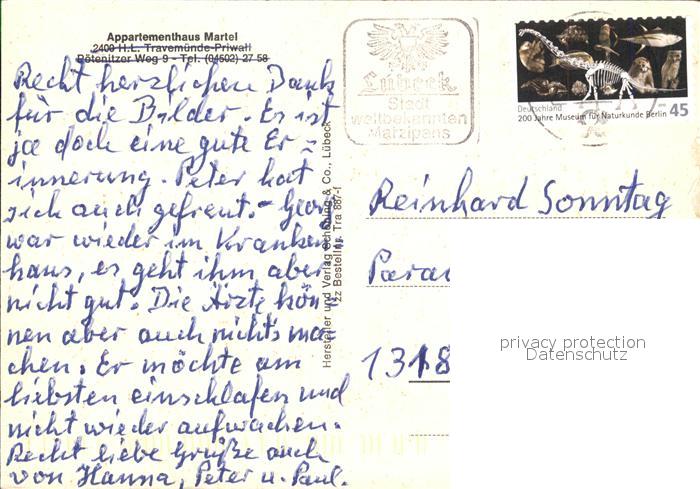 Appartementhaus Martel
2400 H.L. Travemünde-Priwall
Pötenitzer Weg 9 - Tel. (04502) 27 58
Recht herzlichen Dank
für die Bilder. Es ist
ja doch eine gute Er=
innerung. Peter hat
sich auch gefreut. - Georg
war wieder im Kranken
haus, es geht ihm aber
nicht gut. Die Ärzte kön=
nen aber auch nichts ma-
chen. Er möchte am
liebsten einschlafen und
nicht wieder aufwachen.
Recht liebe Grüße auch
von Hanna, Peter u. Paul.
Hersteller und Verlag Schöning & Co., Lübeck
zz Bestellnr. Tra 887-f
Lübeck
Stadt
weltbekannten
Marzipans
Deutschland
45
200 Jahre Museum für Naturkunde Berlin
Reinhard Sonntag
1318
privacy protection
Datenschutz